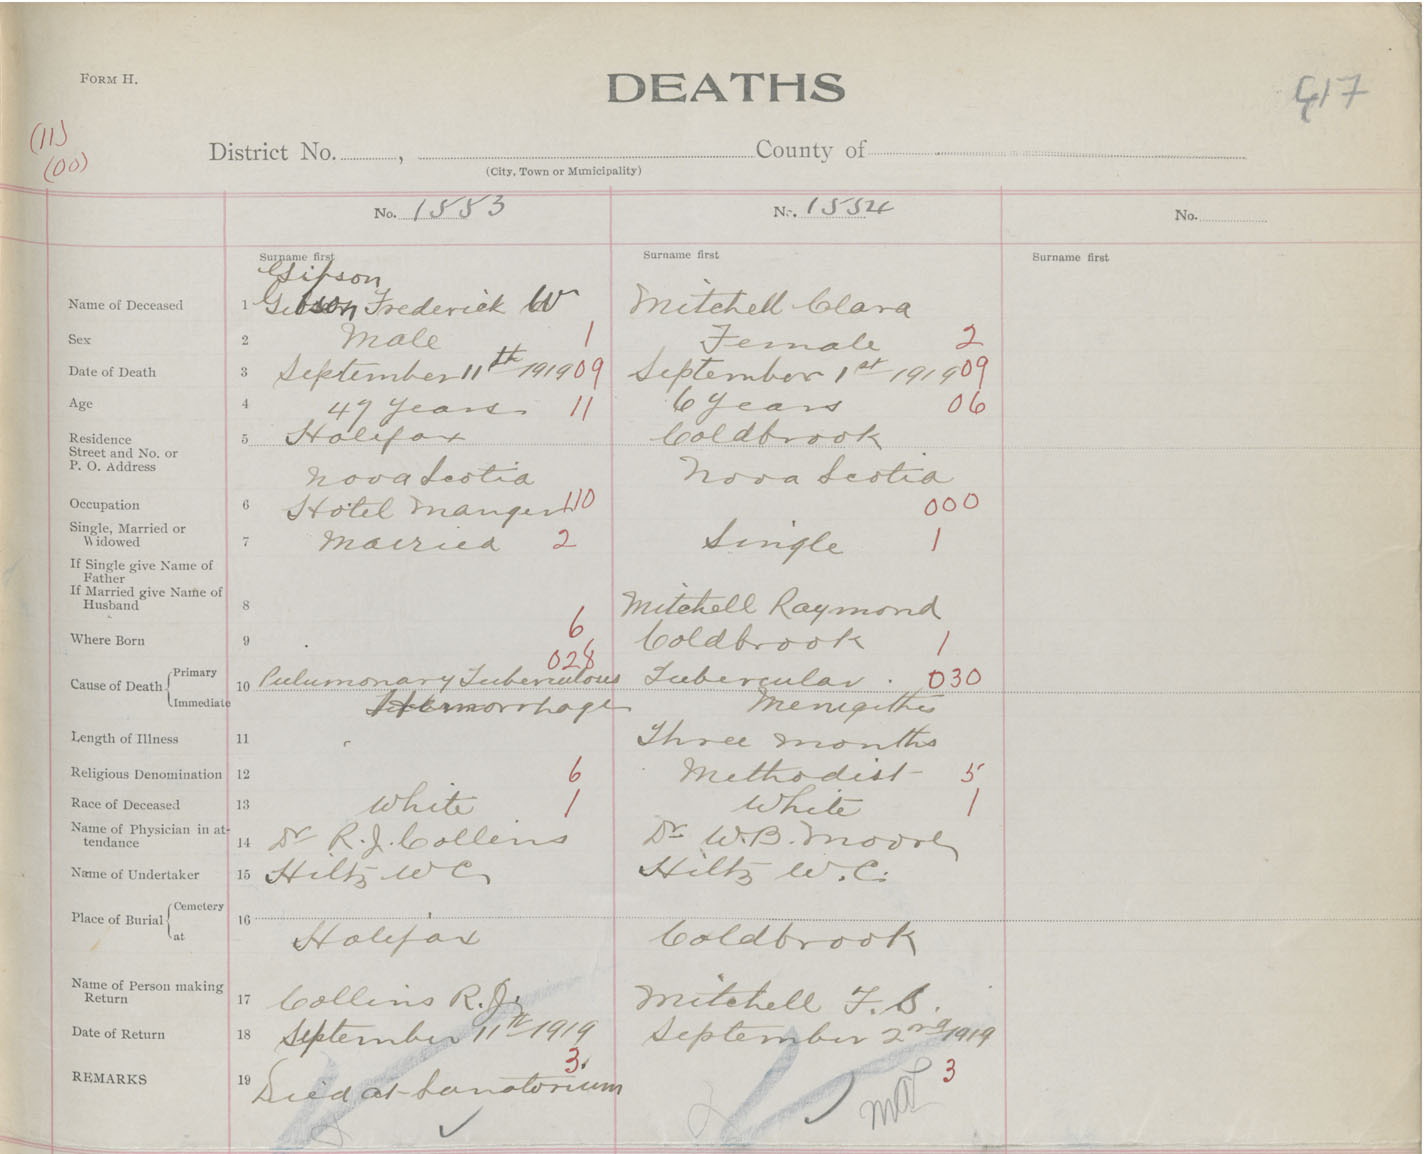 FORM H.
DEATHS
417
(11)
(00)
District No. , County of
(City, Town or Municipality)
No. 1553 No. 1554 No.
Surname first Surname first Surname first
Gipson
Name of Deceased 1 Gibson Frederick W Mitchell Clara
Sex 2 Male 1 Female 2
Date of Death 3 September 11th 1919 09 September 1st 1919 09
Age 4 47 years 11 6 years 06
Residence 5 Halifax Coldbrook
Street and No. or
P. O. Address Nova Scotia Nova Scotia
Occupation 6 Hotel Manger 110 000
Single, Married or
Widowed 7 Married 2 Single 1
If Single give Name of
Father
If Married give Name of
Husband 8 Mitchell Raymond
Where Born 9 6 Coldbrook 1
028
Cause of Death Primary 10 Pulumonary Tuberculous Tubercular 030
Immediate Hermorrhage Menigithis
Length of Illness 11 Three months
Religious Denomination 12 6 Methodist 5
Race of Deceased 13 White 1 White 1
Name of Physician in at-
tendance 14 Dr R. J. Collins Dr W. B. Moore
Name of Undertaker 15 Hiltz W C Hiltz W. C.
Place of Burial Cemetery 16
at Halifax Coldbrook
Name of Person making
Return 17 Collins R. J. Mitchell F. B.
Date of Return 18 September 11th 1919 September 2nd 1919
3 3
REMARKS 19 Died at Sanatorium